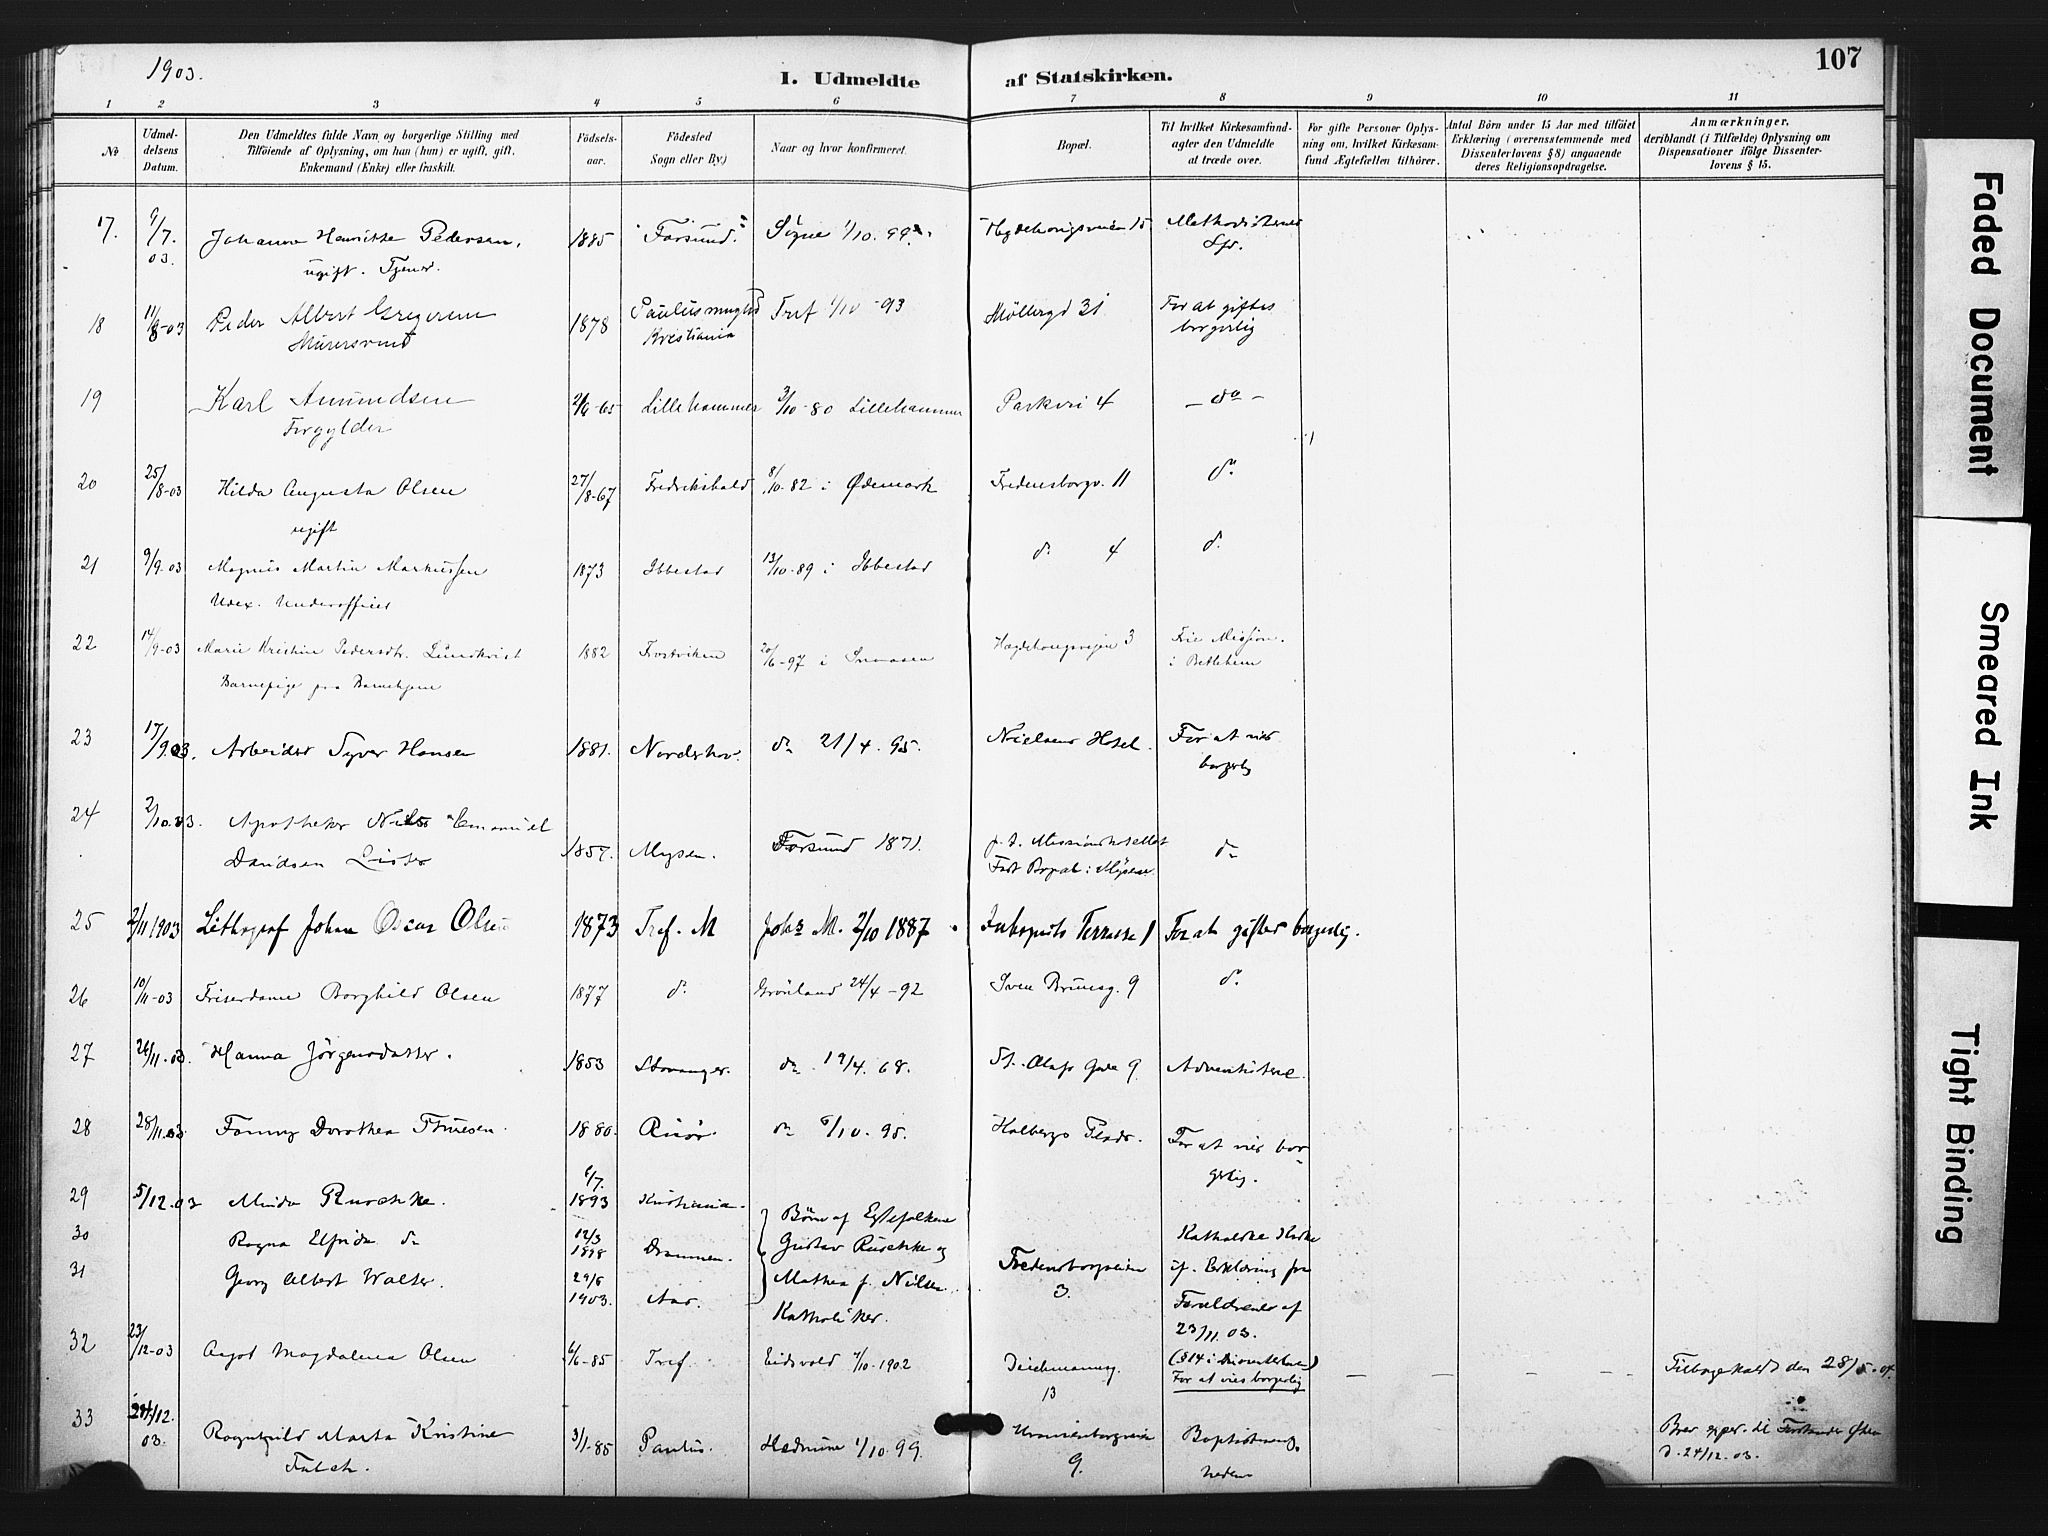 1903.
I. Udmeldte af Statskirken.
107
1 2 3 4 5 6 7 8 9 10 11
No
Udmel-
delsens
Datum.
Den Udmeldtes fulde Navn og borgerlige Stilling med
Tilföiende af Oplysning, om han (hun) er ugift, gift,
Enkemand (Enke) eller fraskilt.
Födsels-
aar.
Födested
Sogn eller By.)
Naar og hvor konfirmeret.
Bopæl.
Til hvilket Kirkesamfund-
agter den Udmeldte
at træde over.
For gifte Personer Oplys-
ning om, hvilket Kirkesam-
fund Ægtefællen tilhörer.
Antal Börn under 15 Aar med tilföiet
Erklæring (overensstemmende med
Dissenterlovens § 8) angaaende
deres Religionsopdragelse.
Anmærkninger,
deriblandt (i Tilfælde) Oplysning om
Dispensationer ifölge Dissenter-
lovens § 15.
17. 9/7. 03. Johanne Henrikke Pedersen, 1885 Farsund. Søgne 1/10. 99. Hegdehaugsveien 15 Methodisternes
ugift. Tjener.
18 11/8-03 Peder Albert Gregersen 1878 Paulusmenighed Tref 1/10-93 Möllergd 31 For at giftes
Murersvend Kristiania borgerlig
19 Karl Amundsen 2/6-65 Lillehammer 3/10-80 Lillehammer Parkvei 4 - do -
Forgylder
20 25/8-03 Hilda Augusta Olsen 27/8-67 Fredrikshald 8/10-82 i Ødemark Fredensborgv. 11 do
ugift
21 9/9.03 Magnus Martin Markussen 1873 Ibbestad 13/10-89 i Ibbestad do 4 do
Udex. Underofficer
22 14/9-03 Marie Kristine Pedersdtr. Lundkvist 1882 Frostviken 20/6-97 i Snaasen Hægdehaugsveien 3 Frie Mission.
Barnepige paa Barnehjem i Betlehem
23 17/9.03. Arbeider Syver Hansen 1881. Norderhov. do 21/4. 95. Nielsens Hotel. For at vies
borgerlig
24 2/10.03. Apotheker Nils Emanuel
Davidsen Lister 1857. Mysen. Farsund 1871. p.t. Missionshotellet do
Fast Bopæl: Mysen.
25 2/11 1903 Lithograf Johan Oscar Olsen 1873 Tref. M Johs M. 2/10 1887 Terrasse 1 For at giftes borgerlig.
26 10/11-03 Friserdame Borghild Olsen 1877 do Grönland 24/4-92 Sven Brunsg. 9 do
27 26/11.03. Hanna Jörgensdatter. 1853 Stavanger. do. 19/4. 68. St. Olafs Gade 9. Adventisterne.
28 28/11.03. Fanny Dorothea Thuesen. 1880. Risör. do 6/10. 95. Holbergs Plads. For at vies bor-
gerlig.
29 5/12.03 Minda Ruschke. 6/7. 1893 Kristiania. Börn af Egtefolkene
30 Ragna Elfrida do 12/3 1898 Drammen. Gustav Ruschke og Katholske Kirke
31 Georg Albert Walter. 29/6 1903. Aas. Mathea f. Nilsen Fredensborgveien if. Erklæring fra
Katholiker. 3. Forældrene af
23/11.03.
32 23/12-03 Aagot Magdalena Olsen 6/6-85 Tref. Eidsvold 1/10-1902 Deichmansg. (§14 i Dissenterloven)
13 For at vies borgerlig
— — - - Tilbagekaldt den 28/5.04.
33 24/12. 03. Ragnhild Marta Kristine 3/1-85 Paulus. Hedrum 1/10 99. Uranienborgveien Baptistmenig-
Falch. 9. heden
Brev til Forstander
d. 24/12.03.
Faded Document
Smeared Ink
Tight Binding